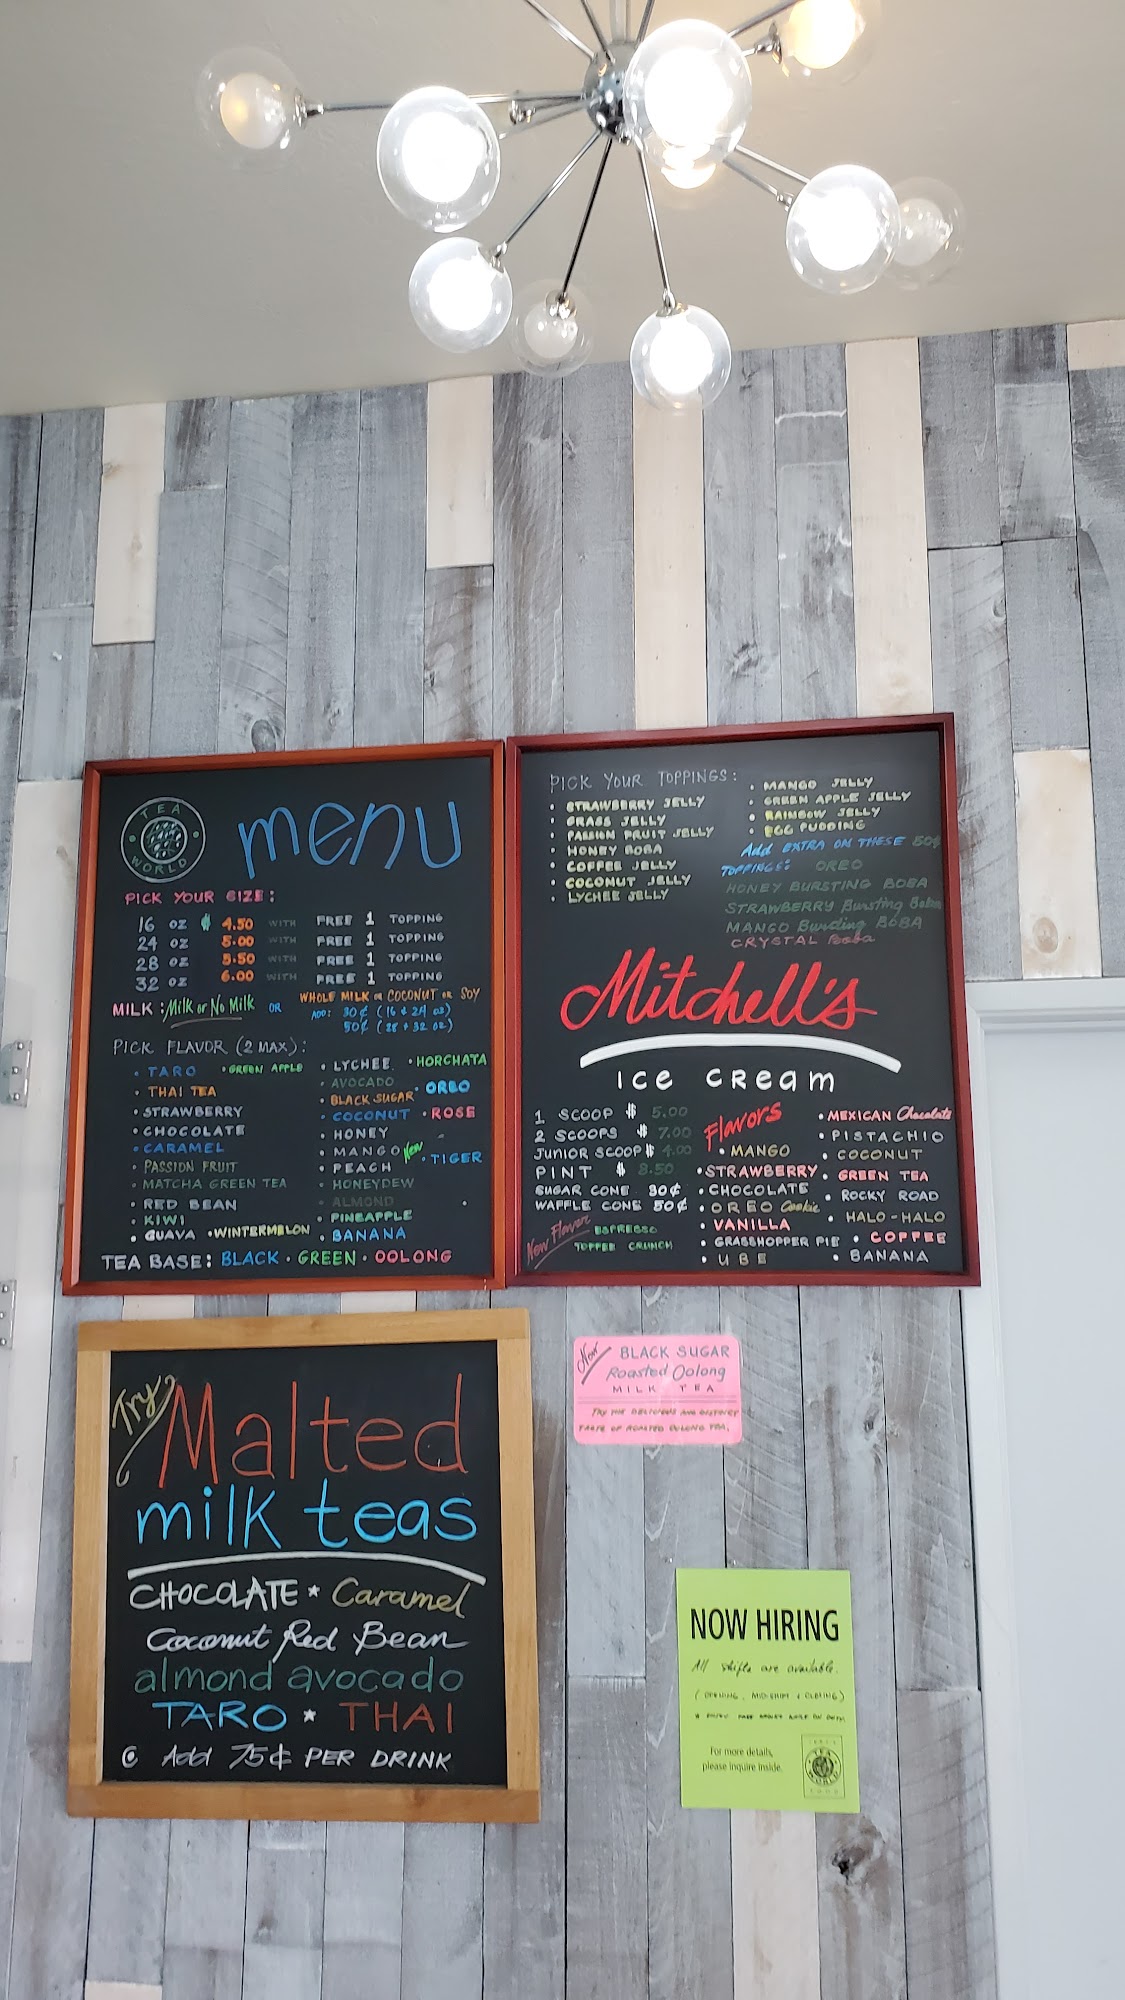 TEA WORLD
menu
PICK YOUR SIZE:
16 oz $ 4.50 WITH FREE 1 TOPPING
24 oz 5.00 WITH FREE 1 TOPPING
28 oz 5.50 WITH FREE 1 TOPPING
32 oz 6.00 WITH FREE 1 TOPPING
MILK: Milk or No Milk OR WHOLE MILK or COCONUT or SOY
ADD: 30¢ (16 & 24 oz)
50¢ (28 + 32 oz)
PICK FLAVOR (2 MAX):
• TARO • GREEN APPLE
• THAI TEA
• STRAWBERRY
• CHOCOLATE
• CARAMEL
• PASSION FRUIT
• MATCHA GREEN TEA
• RED BEAN
• KIWI
• GUAVA • WINTERMELON
• LYCHEE • HORCHATA
• AVOCADO
• BLACK SUGAR • OREO
• COCONUT • ROSE
• HONEY
• MANGO New • TIGER
• PEACH
• HONEYDEW
• ALMOND
• PINEAPPLE
• BANANA
TEA BASE: BLACK • GREEN • OOLONG
PICK YOUR TOPPINGS:
• STRAWBERRY JELLY
• GRASS JELLY
• PASSION FRUIT JELLY
• HONEY BOBA
• COFFEE JELLY
• COCONUT JELLY
• LYCHEE JELLY
• MANGO JELLY
• GREEN APPLE JELLY
• RAINBOW JELLY
• EGG PUDDING
Add EXTRA ON THESE 50¢
TOPPINGS: OREO
HONEY BURSTING BOBA
STRAWBERRY Bursting Boba
MANGO Bursting BOBA
CRYSTAL Boba
Mitchell's
ice cream
1 SCOOP $ 5.00
2 SCOOPS $ 7.00
JUNIOR SCOOP $ 4.00
PINT $ 8.50
SUGAR CONE 30¢
WAFFLE CONE 50¢
New Flavor ESPRESSO
TOFFEE CRUNCH
Flavors
• MANGO
• STRAWBERRY
• CHOCOLATE
• OREO Cookie
• VANILLA
• GRASSHOPPER PIE
• UBE
• MEXICAN Chocolate
• PISTACHIO
• COCONUT
• GREEN TEA
• ROCKY ROAD
• HALO-HALO
• COFFEE
• BANANA
Try Malted
milk teas
CHOCOLATE * Caramel
Coconut Red Bean
almond avocado
TARO * THAI
Add 75¢ PER DRINK
New BLACK SUGAR
Roasted Oolong
MILK TEA
TRY THE DELICIOUS AND DISTINCT
TASTE OF ROASTED OOLONG TEA.
NOW HIRING
All shifts are available.
(OPENING, MID-SHIFT & CLOSING)
For more details,
please inquire inside.
TEA WORLD